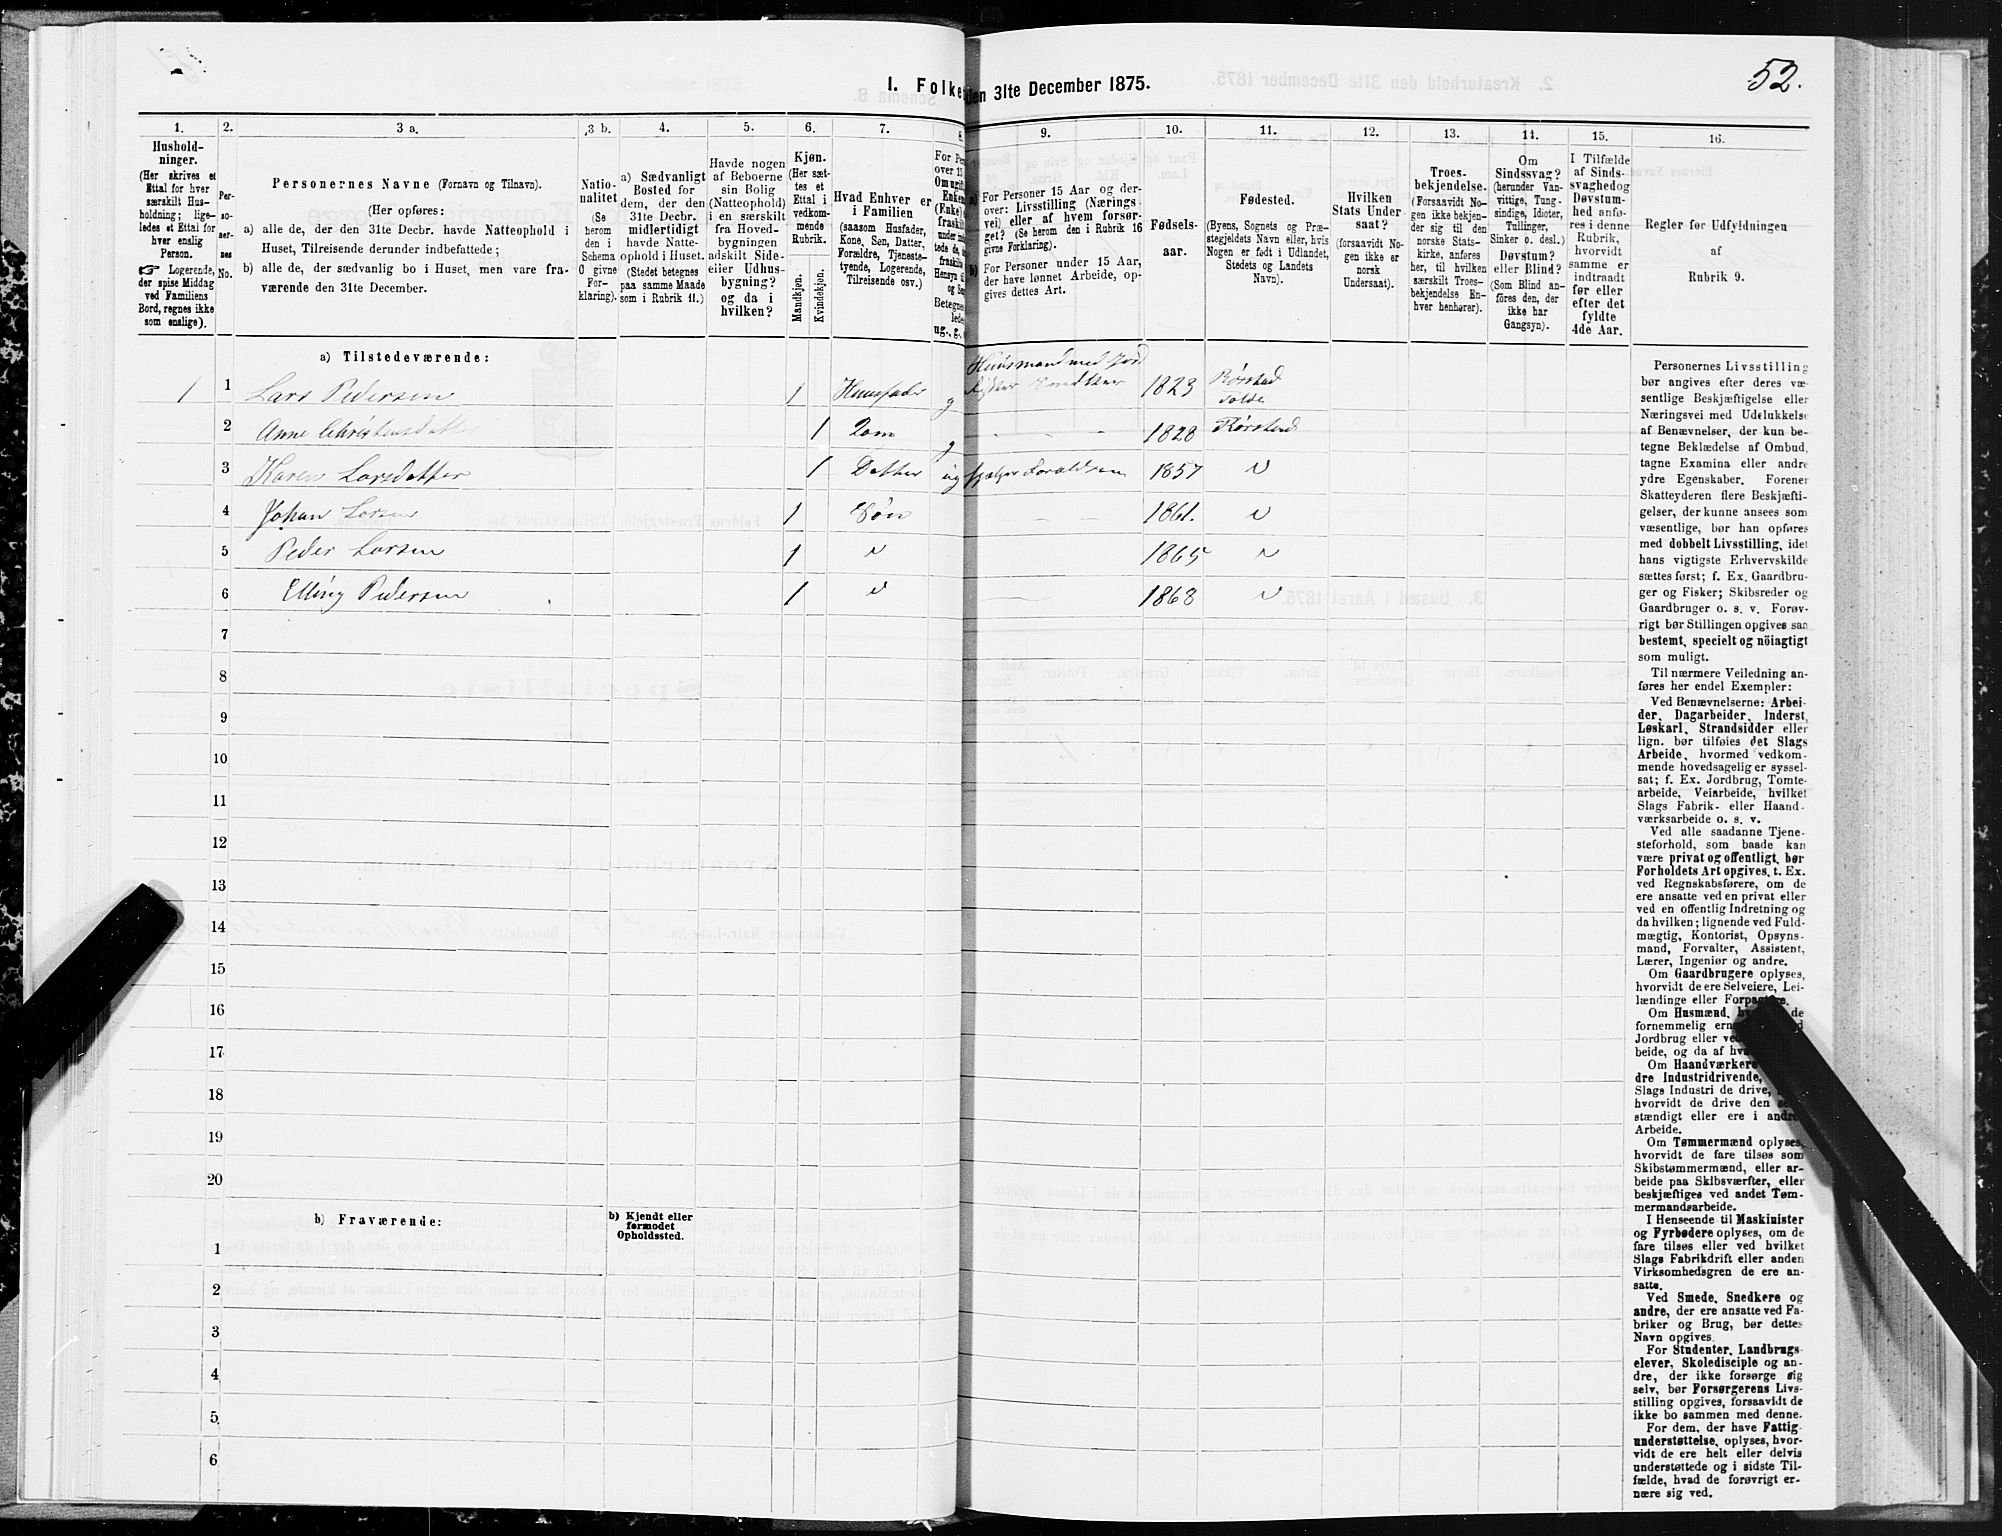 52.
I. Folke
den 31te December 1875.
1. 2. 3 a. 3 b. 4. 5. 6. 7. 8. 9. 10. 11. 12. 13. 14. 15. 16.
Hushold-
ninger.
(Her skrives et
Ettal for hver
særskilt Hus-
holdning; lige-
ledes et Ettal for
hver enslig
Person.
☞ Logerende,
der spise Middag
ved Familiens
Bord, regnes ikke
som enslige).
Per-
so-
ner-
nes
No.
Personernes Navne (Fornavn og Tilnavn).
(Her opføres:
a) alle de, der den 31te Decbr. havde Natteophold i
Huset, Tilreisende derunder indbefattede;
b) alle de, der sædvanlig bo i Huset, men vare fra-
værende den 31te December.
Natio-
nalitet
(Se
herom
den i
Schema
O givne
For-
klaring).
a) Sædvanligt
Bosted for
dem, der den
31te Decbr.
midlertidigt
havde Natte-
ophold i Huset.
(Stedet betegnes
paa samme Maade
som i Rubrik 11.)
Havde nogen
af Beboerne
sin Bolig
(Natteophold)
i en særskilt
fra Hoved-
bygningen
adskilt Side-
eller Udhus-
bygning?
og da i
hvilken?
Kjøn.
(Her sæt-
tes et
Ettal i
vedkom-
mende
Rubrik.
Mandkjøn.
Kvindekjøn.
Hvad Enhver er
i Familien
(saasom Husfader,
Kone, Søn, Datter,
Forældre, Tjeneste-
tyende, Logerende,
Tilreisende osv.)
For Pe
over 15
Om ugift
Enke
(Enke)
fraskilt
under
tede de,
fraskilte
Hensyn til
og
Betegne
lede
ug., g.,
a)
For Personer 15 Aar og der-
over: Livsstilling (Nærings
vei) eller af hvem forsør-
get? (Se herom den i Rubrik 16
givne Forklaring).
b)
For Personer under 15 Aar,
der have lønnet Arbeide, op-
gives dettes Art.
Fødsels-
aar.
Fødested.
(Byens, Sognets og Præ-
stegjeldets Navn eller, hvis
Nogen er født i Udlandet,
Stedets og Landets
Navn).
Hvilken
Stats Under
saat?
(forsaavidt No-
gen ikke er
norsk
Undersaat).
Troes-
bekjendelse.
(Forsaavidt No-
gen ikke bekjen-
der sig til den
norske Stats-
kirke, anføres
her, til hvilken
særskilt Troes-
bekjendelse En-
hver henhører).
Om
Sindssvag?
(herunder Van-
vittige, Tung-
sindige, Idioter,
Tullinger,
Sinker o. desl.)
Døvstum?
eller Blind?
(Som Blind an-
føres den, der
ikke har
Gangsyn).
I Tilfælde
af Sinds-
svaghedog
Døvstum-
hed anfø-
res i denne
Rubrik,
hvorvidt
samme er
indtraadt
før eller
efter det
fyldte
4de Aar.
Regler før Udfyldningen
af
Rubrik 9.
a) Tilstedeværende:
1 1 Lars Pedersen 1 Huusfader g Huusmand med Jord 1823 Rørstad
2 Anne Christensdatter 1 Kone g 1828 Rørstad
3 Karen Larsdatter 1 Datter ug hjælper Forældrene 1857 "
4 Johan Larsen 1 Søn 1861. "
5 Peder Larsen 1 " 1865 "
6 Elling Pedersen 1 " 1868 "
7
8
9
10
11
12
13
14
15
16
17
18
19
20
b) Fraværende:
b) Kjendt eller
formodet
Opholdssted.
1
2
3
4
5
6
Personernes Livsstilling
bør angives efter deres væ-
sentlige Beskjæftigelse eller
Næringsvei med Udelukkelse
af Benævnelser, der kun be-
tegne Beklædelse af Ombud,
tagne Examina eller andre
ydre Egenskaber. Forener
Skatteyderen flere Beskjæfti-
gelser, der kunne ansees som
væsentlige, bør han opføres
med dobbelt Livsstilling, idet
hans vigtigste Erhvervskilde
sættes først; f. Ex. Gaardbru-
ger og Fisker; Skibsreder og
Gaardbruger o. s. v. Forøv-
rigt bør Stillingen opgives saa
bestemt, specielt og nöiagtigt
som muligt.
Til nærmere Veiledning an-
føres her endel Exempler:
Ved Benævnelserne: Arbei-
der, Dagarbeider, Inderst,
Løskarl, Strandsidder eller
lign. bør tilføies det Slags
Arbeide, hvormed vedkom-
mende hovedsagelig er syssel-
sat; f. Ex. Jordbrug, Tomte-
arbeide, Veiarbeide, hvilket
Slags Fabrik- eller Haand-
værksarbeide o. s. v.
Ved alle saadanne Tjene-
steforhold, som baade kan
være privat og offentligt, bør
Forholdets Art opgives, t. Ex.
ved Regnskabsførere, om de
ere ansatte ved en privat eller
ved en offentlig Indretning og
da hvilken; lignende ved Fuld-
mægtig, Kontorist, Opsyns-
mand, Forvalter, Assistent,
Lærer, Ingeniør og andre.
Om Gaardbrugere oplyses,
hvorvidt de ere Selveiere, Lei-
lændinge eller Forpagtere.
Om Husmænd, de
fornemmelig
Jordbrug eller
beide, og da af
Om Haandværkere
dre Industridrivende,
Slags Industri de drive,
hvorvidt de drive den
stændigt eller ere i andres
Arbeide.
Om Tømmermænd oplyses,
hvorvidt de fare tilsøs som
Skibstømmermænd, eller ar-
beide paa Skibsværfter, eller
beskjæftiges ved andet Tøm-
mermandsarbeide.
I Henseende til Maskinister
og Fyrbødere oplyses, om de
fare tilsøs eller ved hvilket
Slags Fabrikdrift eller anden
Virksomhedsgren de ere an-
satte.
Ved Smede, Snedkere og
andre, der ere ansatte ved Fa-
briker og Brug, bør dettes
Navn opgives.
For Studenter, Landbrugs-
elever, Skoledisciple og an-
dre, der ikke forsørge sig
selv, bør Forsørgerens Livs-
stilling opgives, forsaavidt de
ikke bo sammen med denne.
For dem, der have Fattig-
understøttelse, oplyses, hvor-
vidt de ere helt eller delvis
understøttede og i sidste Til-
fælde, hvad de forøvrigt er-
nære sig ved.